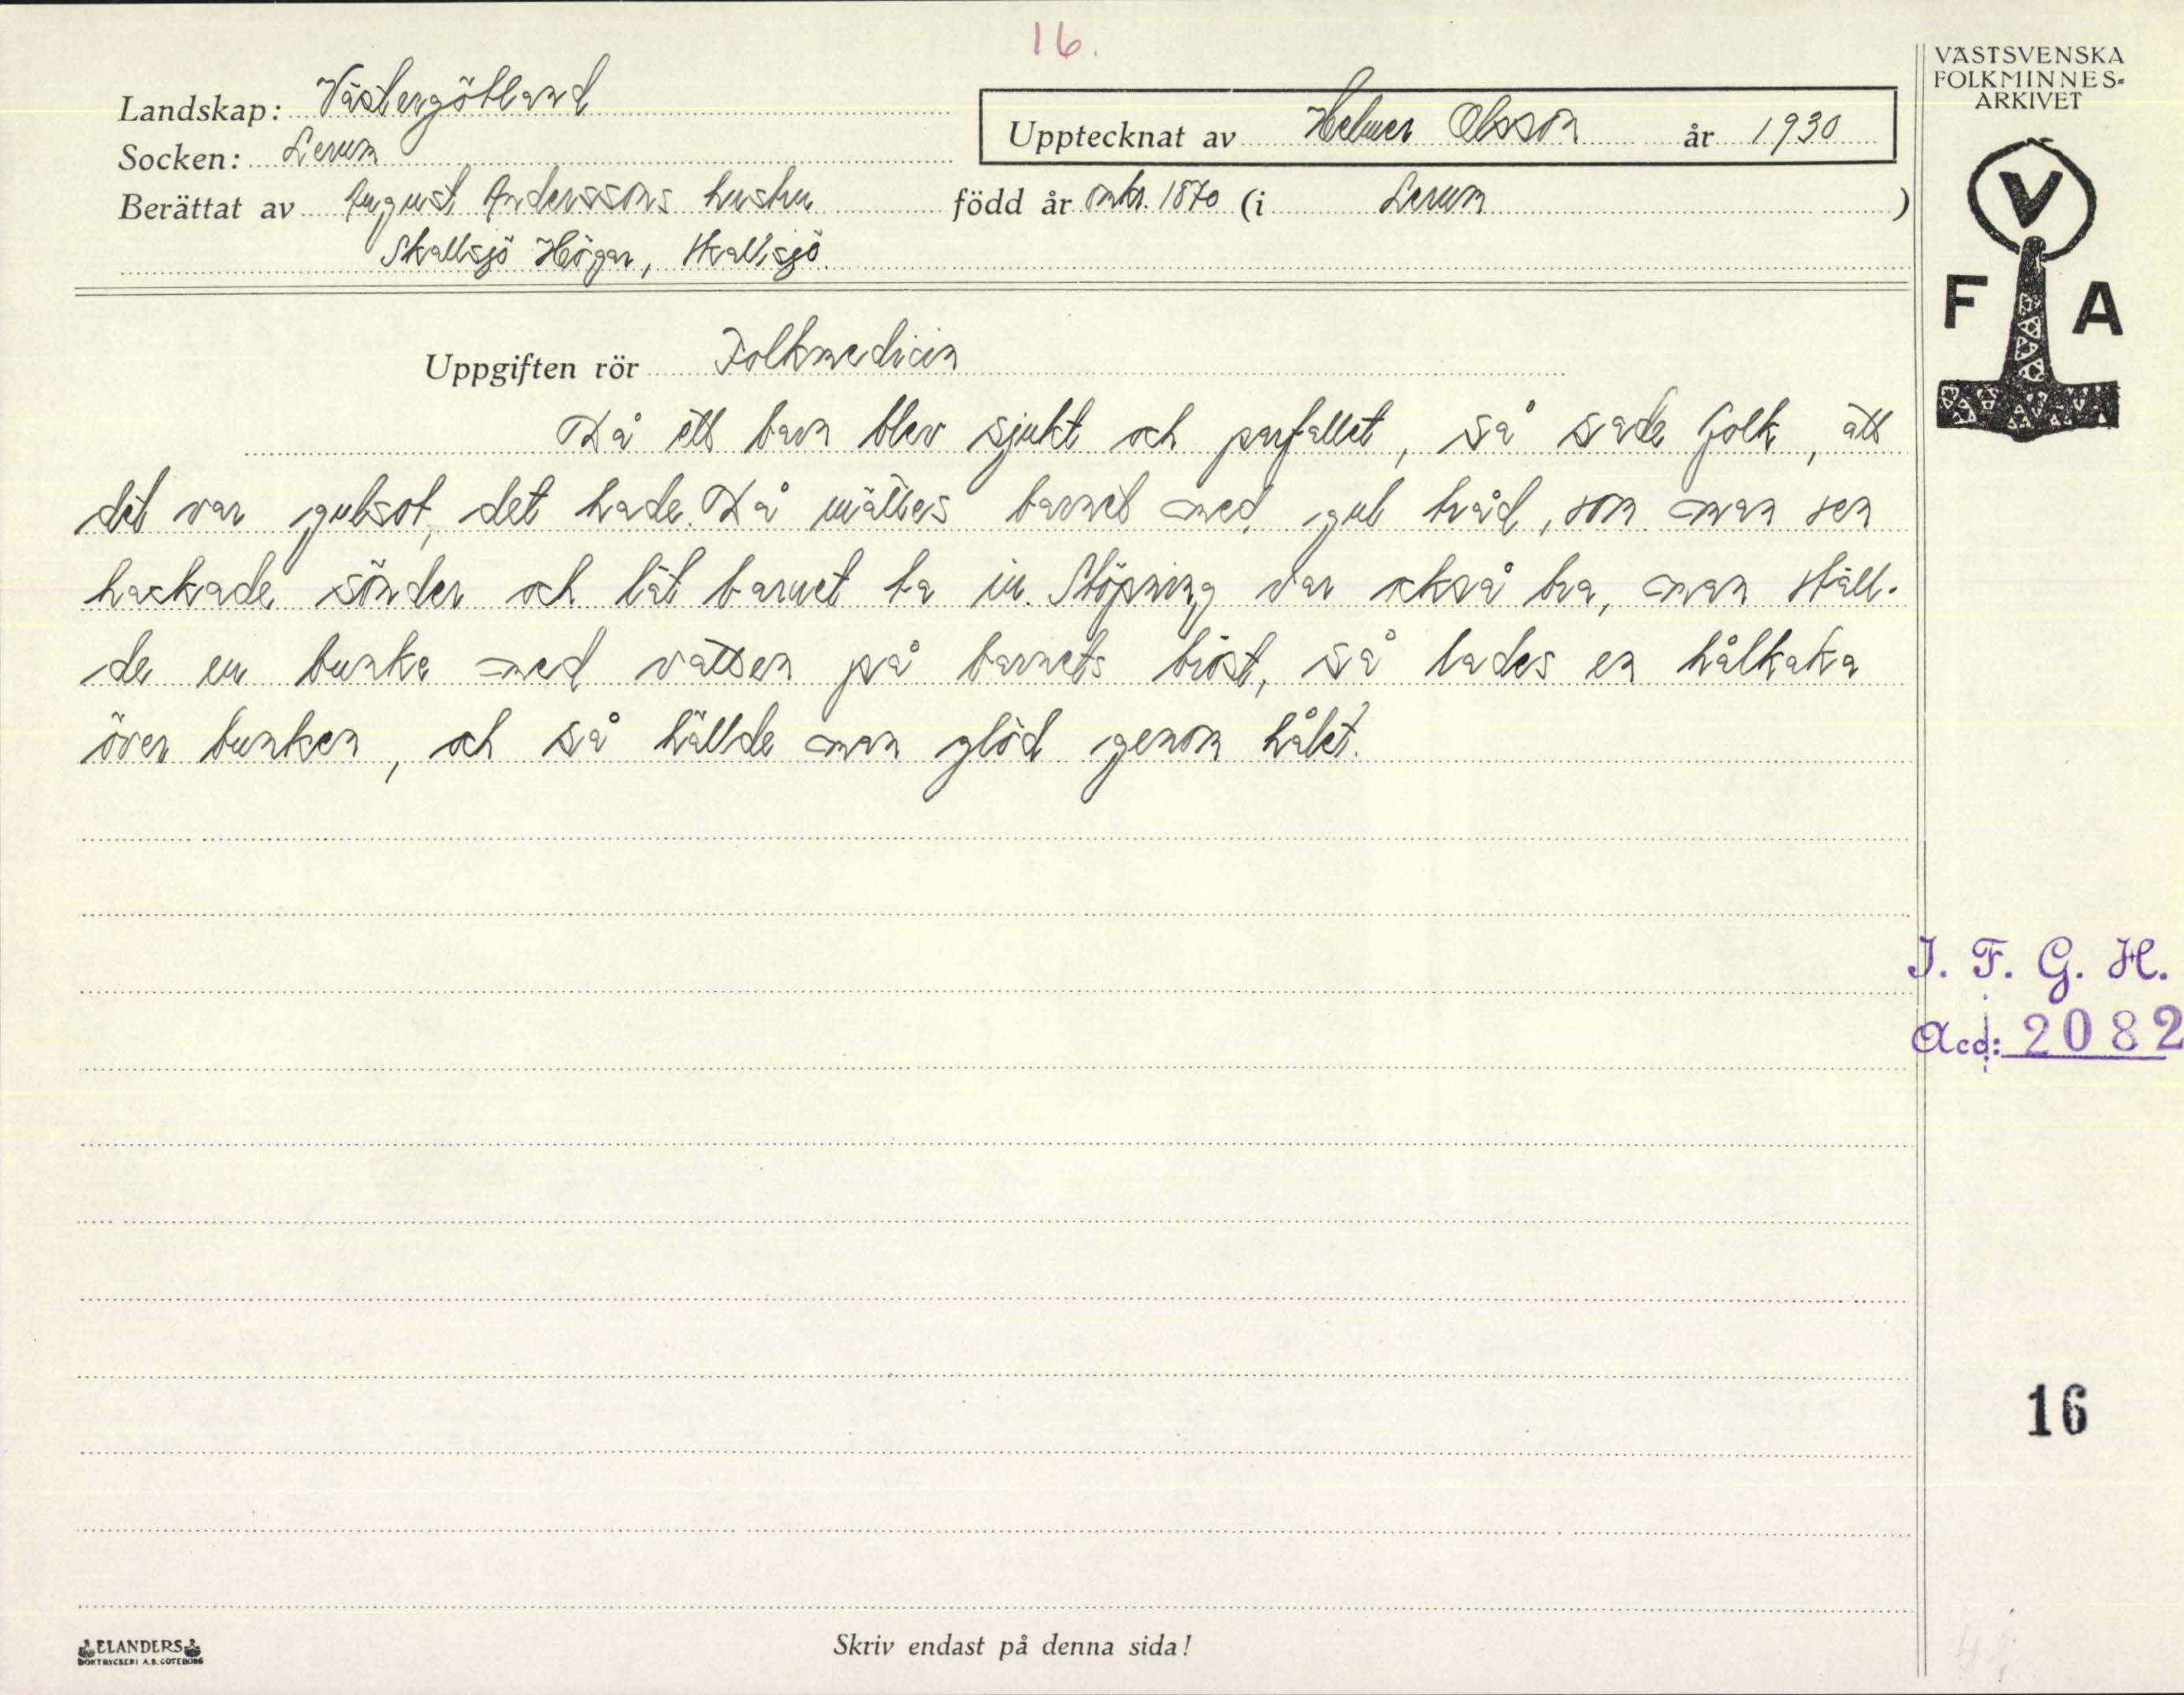 16.
Landskap: Västergötland
Upptecknat av Helmer Olsson år 1930
Socken: Lerum
Berättat av August Anderssons hustru född år omkr. 1870 (i Lerum)
Skallsjö Högar, Skallsjö.
VÄSTSVENSKA
FOLKMINNES-
ARKIVET
V
F A
Uppgiften rör Folkmedicin
Då ett barn blev sjukt och förfallet, så sade folk, att
det var gulsot, det hade. Då mättes barnet med gul tråd, som man sen
hackade sönder och lät barnet ta in. Stöpning var också bra, man ställ-
de en bunke med vatten på barnets bröst, så lades en hålkaka
över bunken, och så hällde man glöd genom hålet.
I. F. G. H.
Acc: 2082
16
ELANDERS
BOKTRYCKERI A.B. GÖTEBORG
Skriv endast på denna sida!